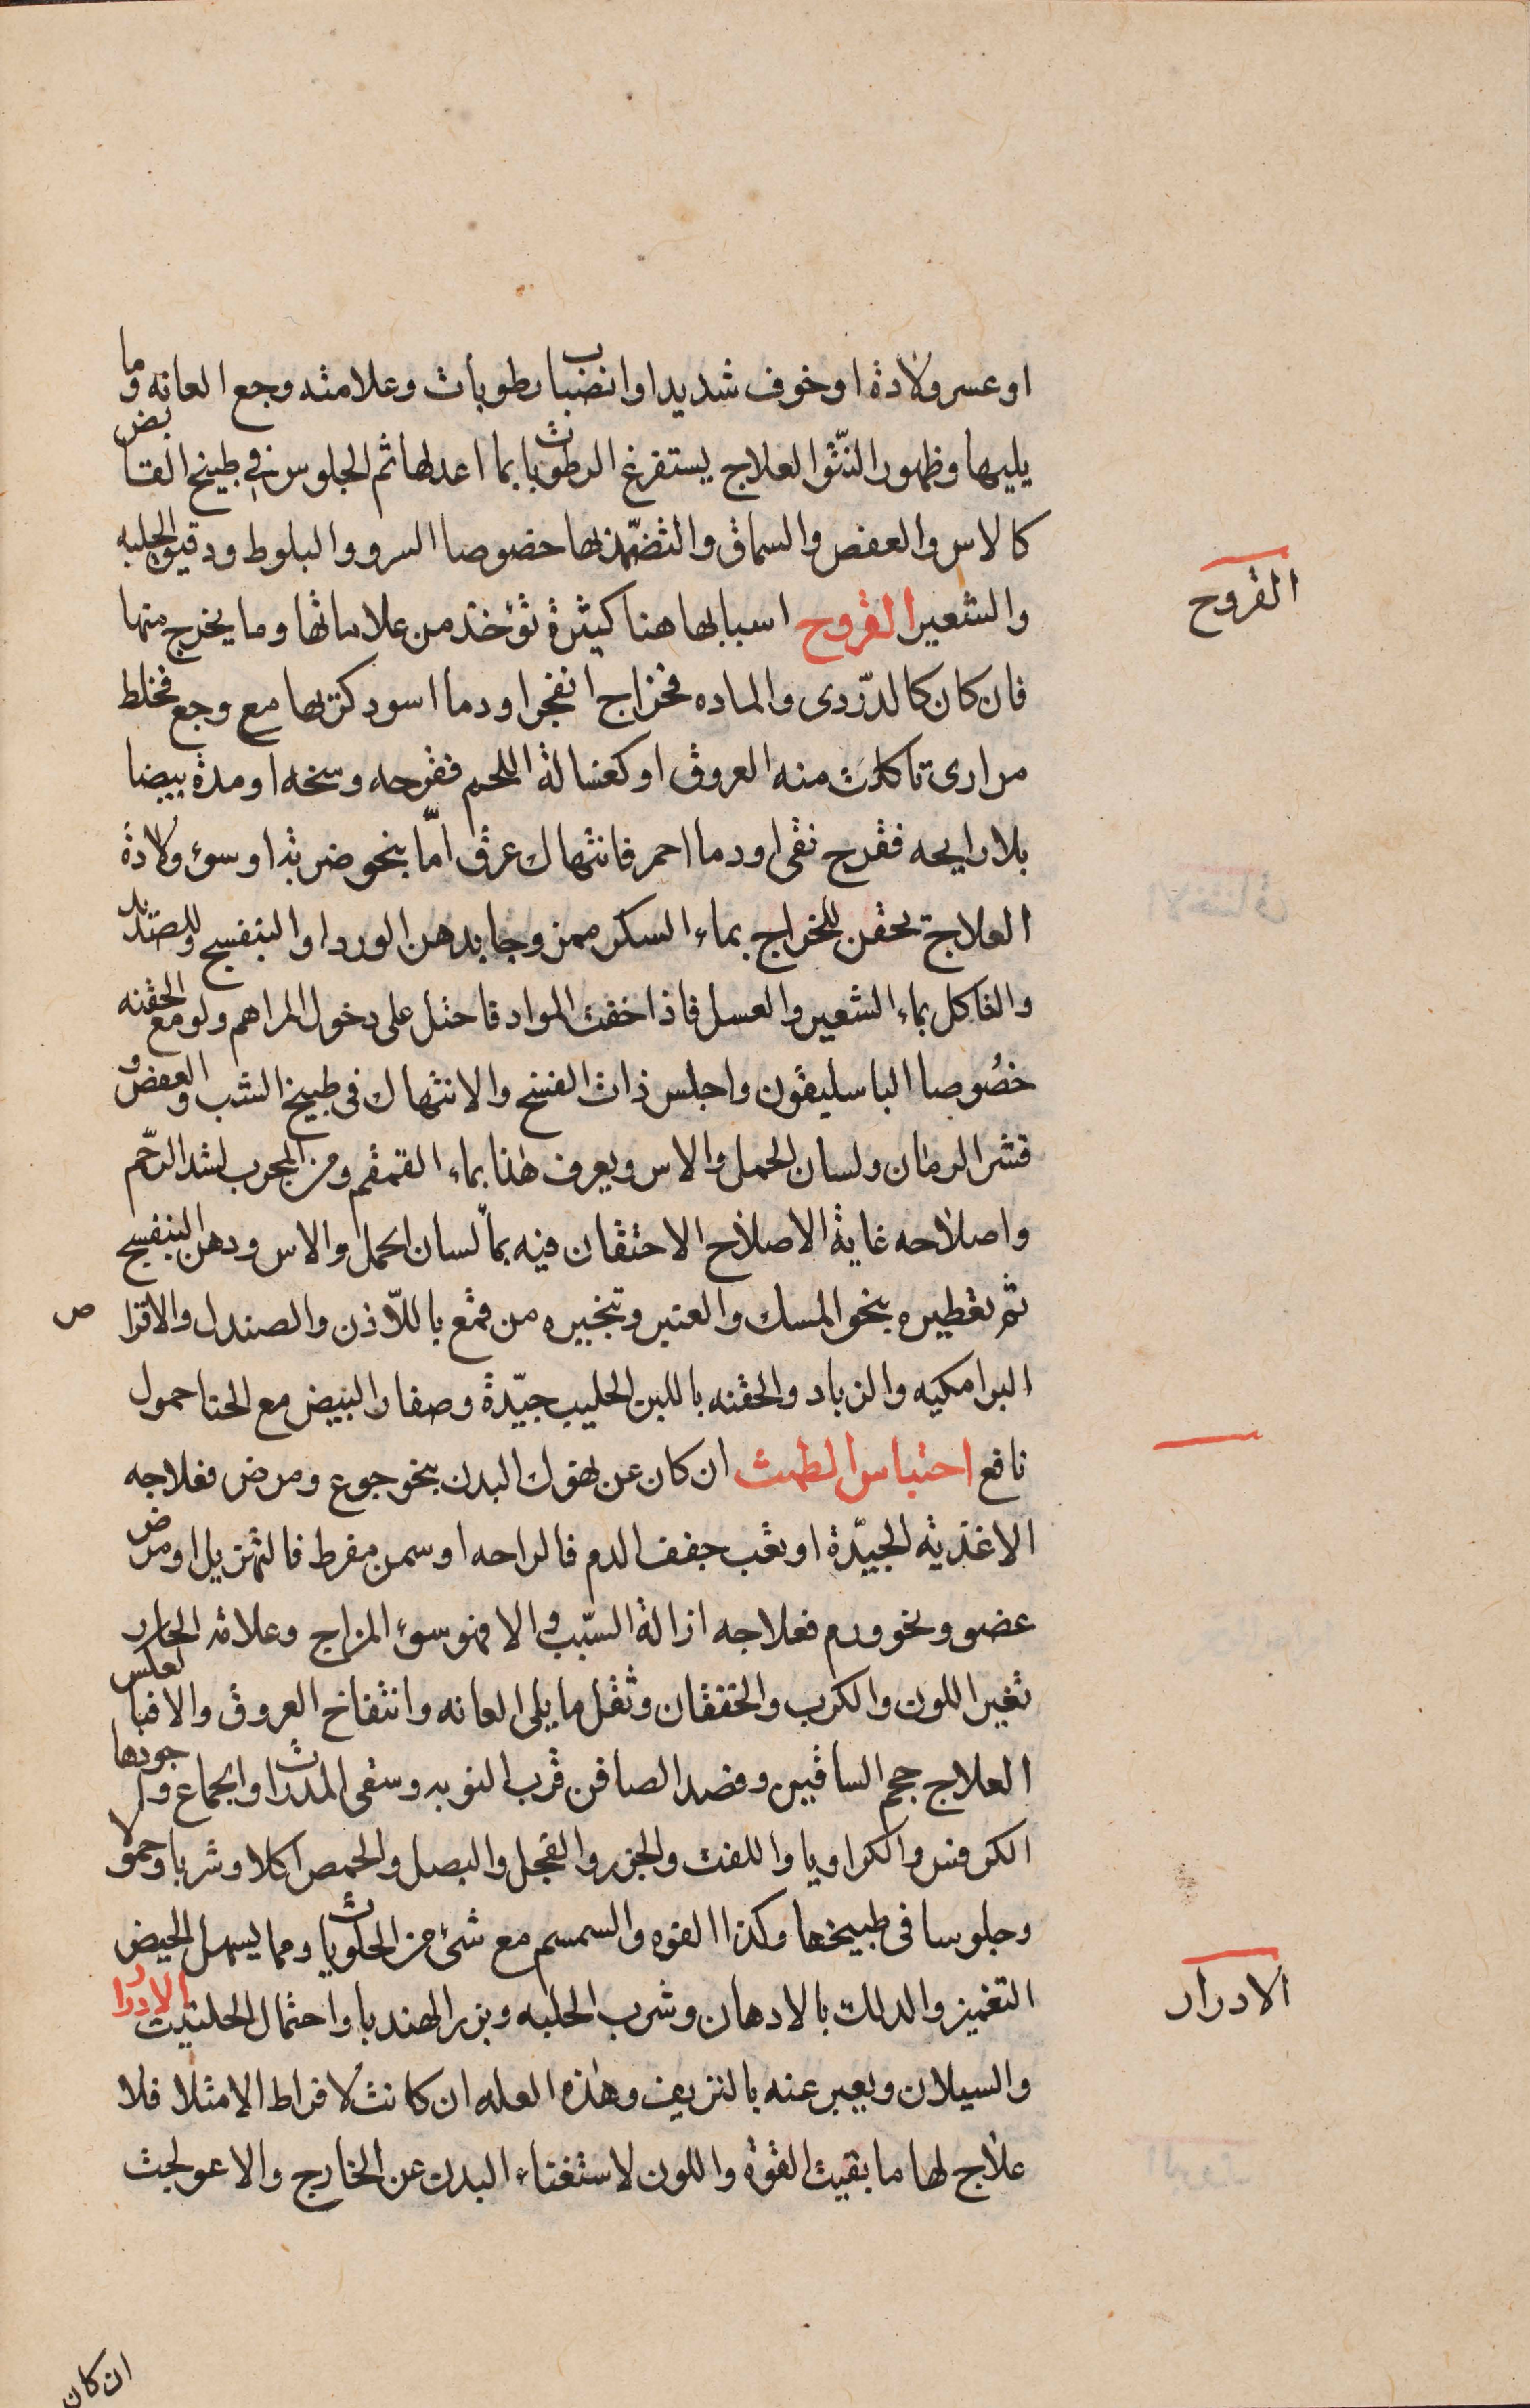 او عسر ولادة او خوف شديد او انضباب رطوبات وعلامته وجع العانه وما
يليها وظهور النتّو العلاج يستفرغ الرطوبات بما اعد لها ثم الجلوس في طبيخ القابض
كالاس والعفص والسماق والتضمّد بها خصوصا السرو والبلوط ودقيق الحلبه
والشعير القروح اسبابها هنا كثيرة تؤخذ من علاماتها وما يخرج منها
فان كان كالدّردى والماده فخراج انفجر او دما اسود كثر بها مع وجع فخلط
مرارى تاكلت منه العروق او كغسالة اللحم فقرحه وسخه او مدة بيضا
بلا رايحه فقرح نقى او دما احمر فانتهاك عرق امّا بنحو ضربة او سوء ولادة
العلاج تحقن للخراج بماء السكر ممزوجا بدهن الورد او البنفسج وللصديد
والتاكل بماء الشعير والعسل فاذا خفت المواد فاحتل على دخول المراهم ولو مع الحقنه
خصُوصا الباسليقون واجلس ذات الفسخ والانتهاك فى طبيخ الشب والعفص و
قشر الرمان ولسان الحمل والاس ويعرف هذا بماء القمقم ومن المجرب لشد الرّحم
واصلاحه غاية الاصلاح الاحتقان فيه بماّ لسان الحمل والاس ودهن البنفسج
ثم تعطيره بنحو المسك والعنبر وتبخيره من قمع باللّاذن والصندل والاقراص
البرامكيه والزباد والحقنه باللبن الحليب جيّدة وصفار البيض مع الحنا حمول
نافع احتباس الطمث ان كان عن نهوك البدن بنحو جوع ومرض فعلاجه
الاغذية الجيّدة او تعب جفف الدم فالراحه او سمن مفرط فالتهزيل او مرض
عضو ونحو ورم فعلاجه ازالة السّبب والا فهو سوء المزاج وعلامة الحار
تغير اللون والكرب والخفقان وثقل ما يلى العانه وانتفاخ العروق والا فبالعكس
العلاج حجم الساقين وفصد الصافن قرب النوبه وسقى المدرات والجماع واجودها
الكرفس والكراويا واللفت والجزر والفجل والبصل والحمص اكلا وشربا وحمولا
وجلوسا فى طبيخها وكذا الفوه والسمسم مع شئ من الحلويات ومما يسهل الحيض
التغميز والدلك بالادهان وشرب الحلبه وبزر الهندبا واحتمال الحلتيت الادرار
والسيلان ويعبر عنه بالنزيف وهذه العله ان كانت لافراط الامتلا فلا
علاج لها ما بقيت القوة واللون لاستغناء البدن عن الخارج والا عولجت
القروح
الادرار
ان كان